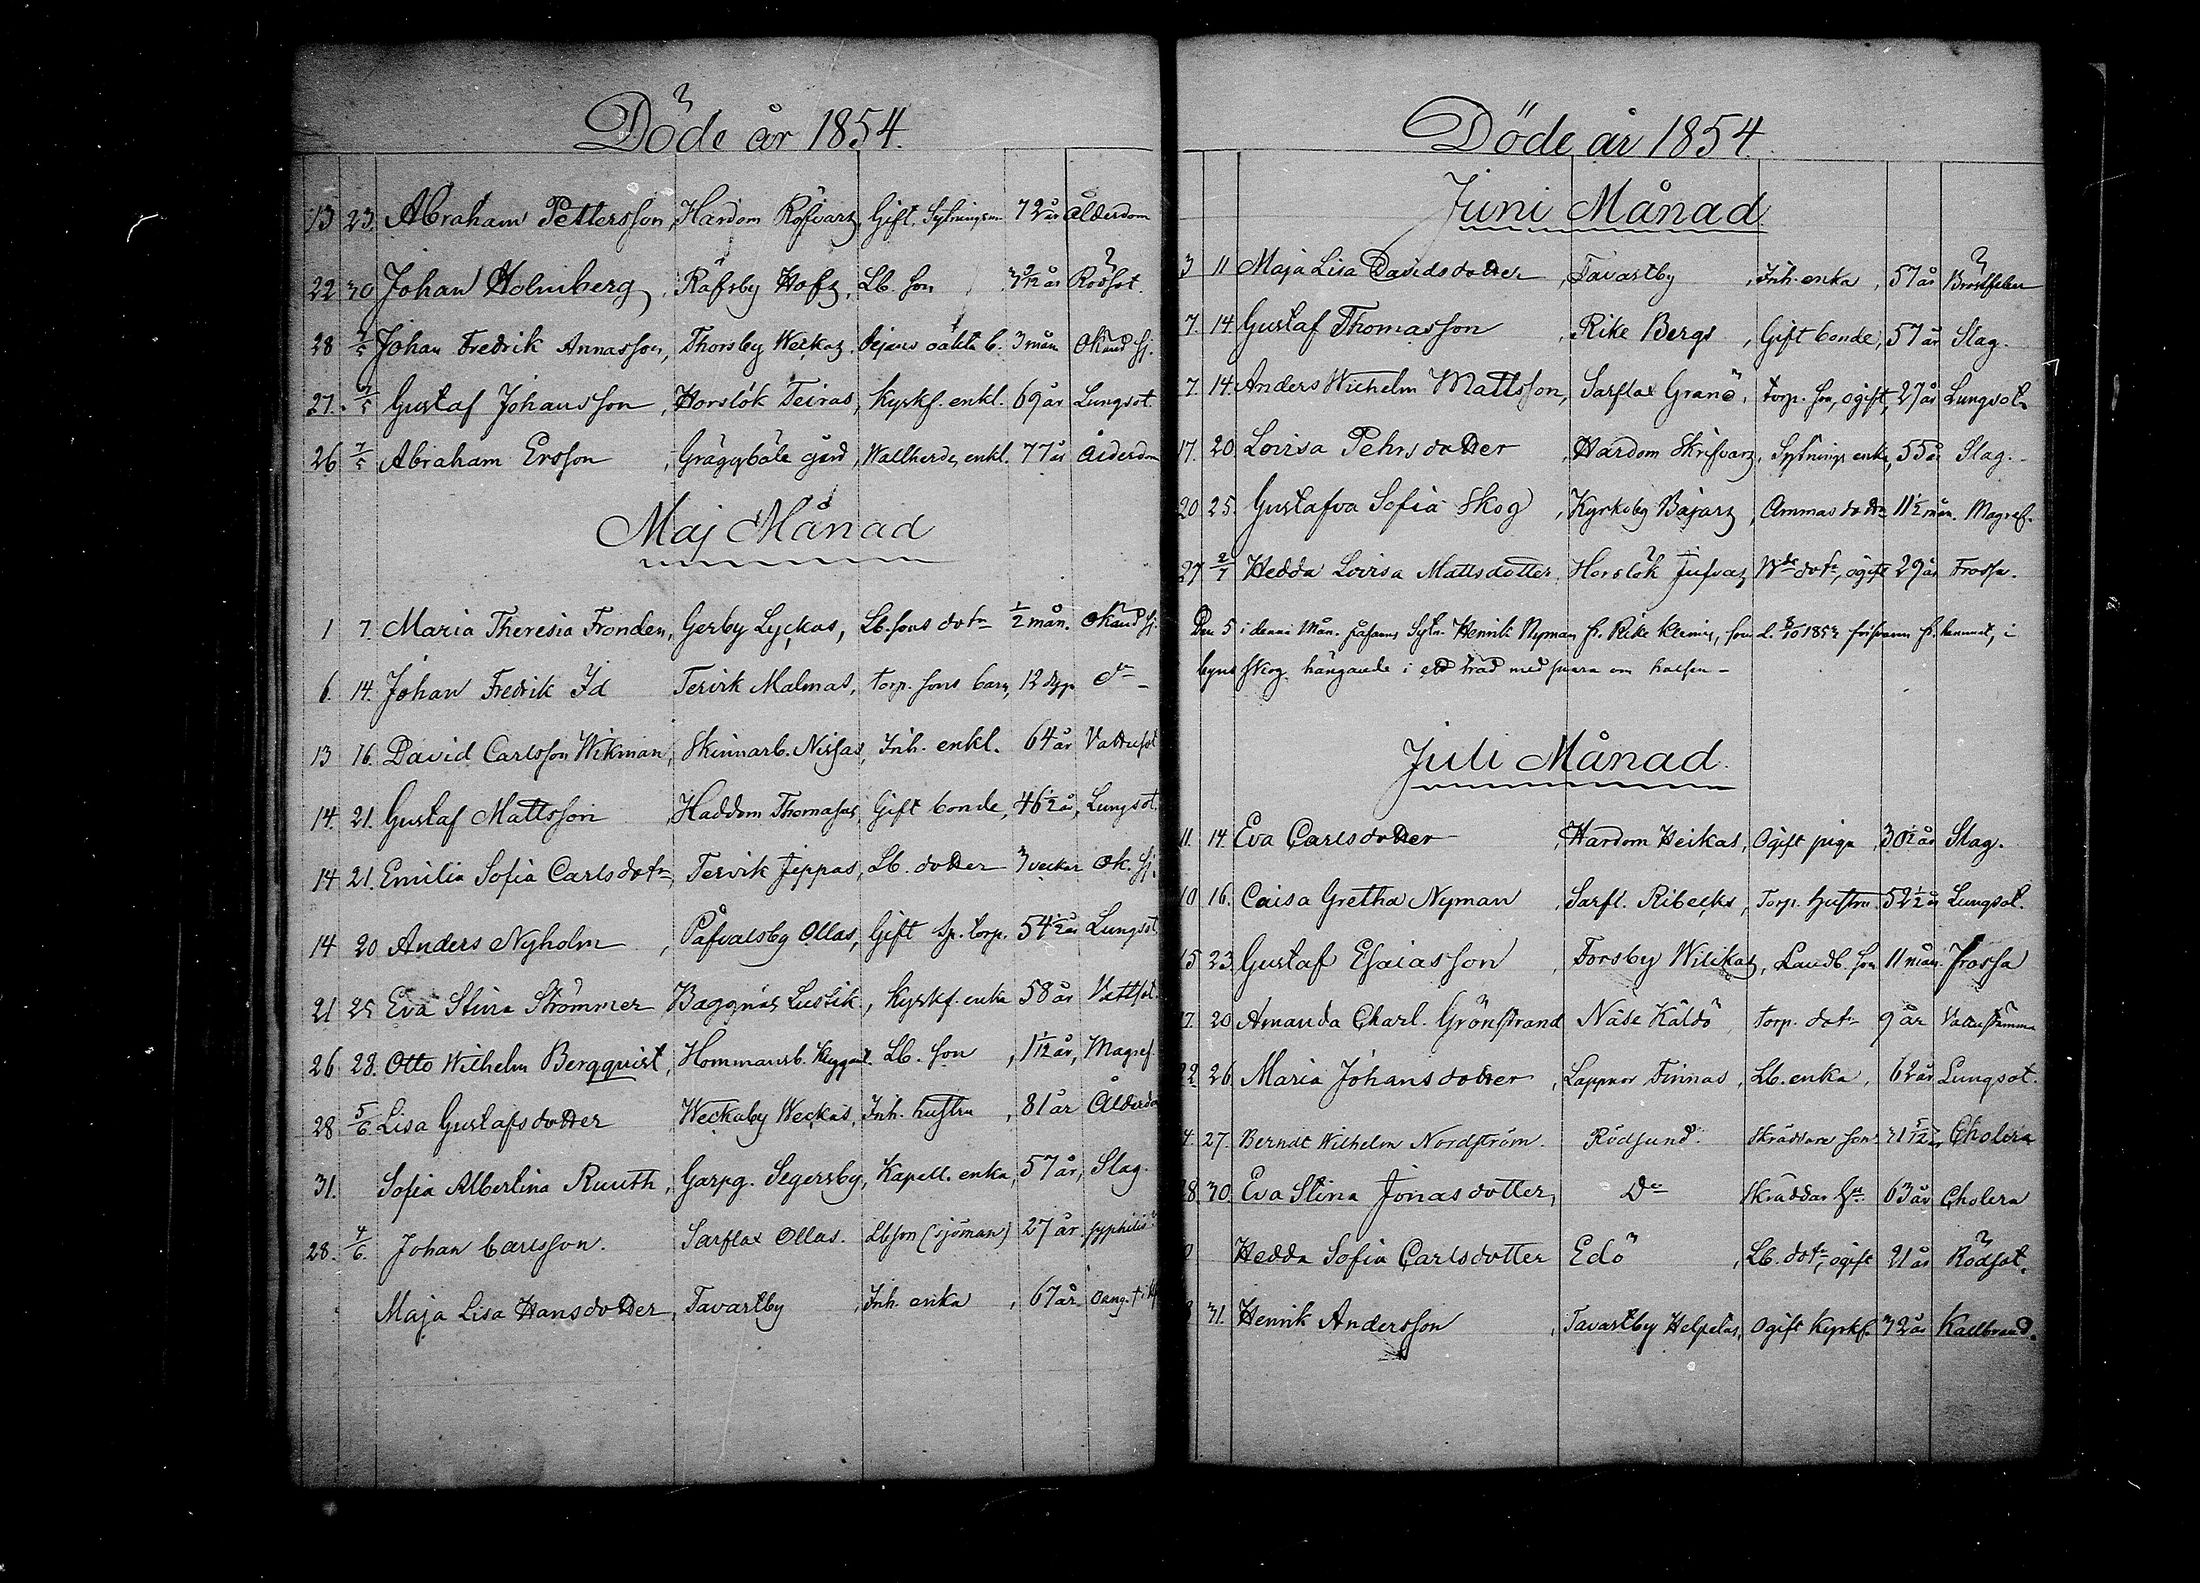 Döde år 1854.
13 23. Abraham Pettersson, Hardom Röfvarz, Gift. Sytningsm 72 år Ålderdom
22 30 Johan Holmberg, Räfsby Hofz, Lb. son 3 9/12 år Rödsot.
28 2/5 Johan Fredrik Annasson, Thorsby Weckaz. Pejans oäkta b. 3 mån Okänd sj.
27. 7/5 Gustaf Johansson, Horslök Teiras, Kyrkf. enkl. 69 år Lungsot.
26 7/5 Abraham Ersson, Gräggböle gård, Wallherde, enkl. 77 år Ålderdom
Maj Månad
1 7. Maria Theresia Fronden, Gerby Lyckas, Lb. sons dotr 1/2 mån. Okänd sj.
6 14. Johan Fredrik Id Tervik Malmas, torp. sons barn, 12 dyg. do
13 16. David Carlsson Wikman, Skinnarb. Nissas, Inh. enkl. 64 år Vattusot
14. 21. Gustaf Mattsson, Haddom Thomasas, Gift bonde, 46 1/2 år, Lungsot.
14 21. Emilia Sofia Carlsdotr, Tervik Jeppas, Lb. dotter 3 veckor Ok. sj.
14 20 Anders Nyholm, Påfvalsby Ollas, Gift sp. torp. 54 1/2 år Lungsot
21 25 Eva Stina Strömmer Baggnäs Lustik, Kyrkf. enka 58 år Vattsot
26 28. Otto Wilhelm Bergqvist, Hommansb. Lb. son, 1 1/12 år, Magref
28 5/6 Lisa Gustafsdotter Weckaby Weckas, Inh. hustru, 81 år Ålderdo
31. Sofia Albertina Ruuth, Garpg. Segersby, Kapell. enka, 57 år, Slag.
28. 4/6. Johan Carlsson. Sarflax Ollas. Lbson (sjöman) 27 år syphilis
Maja Lisa Hansdotter, Tavastby, Inh. enka, 67 år. Oang.
Döde år 1854.
Juni Månad
3 11 Maja Lisa Davidsdotter, Tavastby, Inh. enka, 57 år Bröstfeber
7. 14. Gustaf Thomasson, Rike Bergs, Gift bonde, 57 år Slag.
7. 14. Anders Wilhelm Mattsson, Sarflax Granö, torp. son, ogift, 27 år Lungsot
17. 20 Lovisa Pehrsdotter, Hardom Skrifvarz, Sytnings enka, 55 år Slag.
20 25. Gustafva Sofia Skog, Kyrkoby Bajarz, Ammas dotr 11 1/2 mån. Magref.
27 2/7 Hedda Lovisa Mattsdotter, Horslök Jufvaz Nde dotr, ogift 29 år Frossa.
Den 5 i denna Mån. påfanns Sytn. Henrik Nyman fr. Rike Klemis, som d. 8/10 1853 försvann fr. hemmet, i
byns skog hängande i ett träd med snara om halsen –
Juli Månad.
11. 14. Eva Carlsdotter, Hardom Heikas, Ogift piga 30 1/2 år Slag.
10 16. Caisa Gretha Nyman, Sarfl. Ribecks, Torp. hustru. 52 1/2 år Lungsot.
15 23 Gustaf Esaiasson, Forsby Wilikas, Landb. son 11 mån. Frossa
17. 20 Amanda Charl. Grönstrand Näse Käldö torp. dotr 9 år Vattustämma
22. 26. Maria Johansdotter, Lappnor Finnas, Lb. enka, 62 år Lungsot.
4. 27. Berndt Wilhelm Nordström. Rödsund. Skräddare son 31 5/12 Cholera
28. 30. Eva Stina Jonasdotter, Do Skräddar hu. 63 år Cholera
Hedda Sofia Carlsdotter Edö, Lb. dotr, ogift 21 år Rödsot.
31. Henrik Andersson, Tavastby Helpelas, Ogift Kyrkf. 32 år Kallbrand.